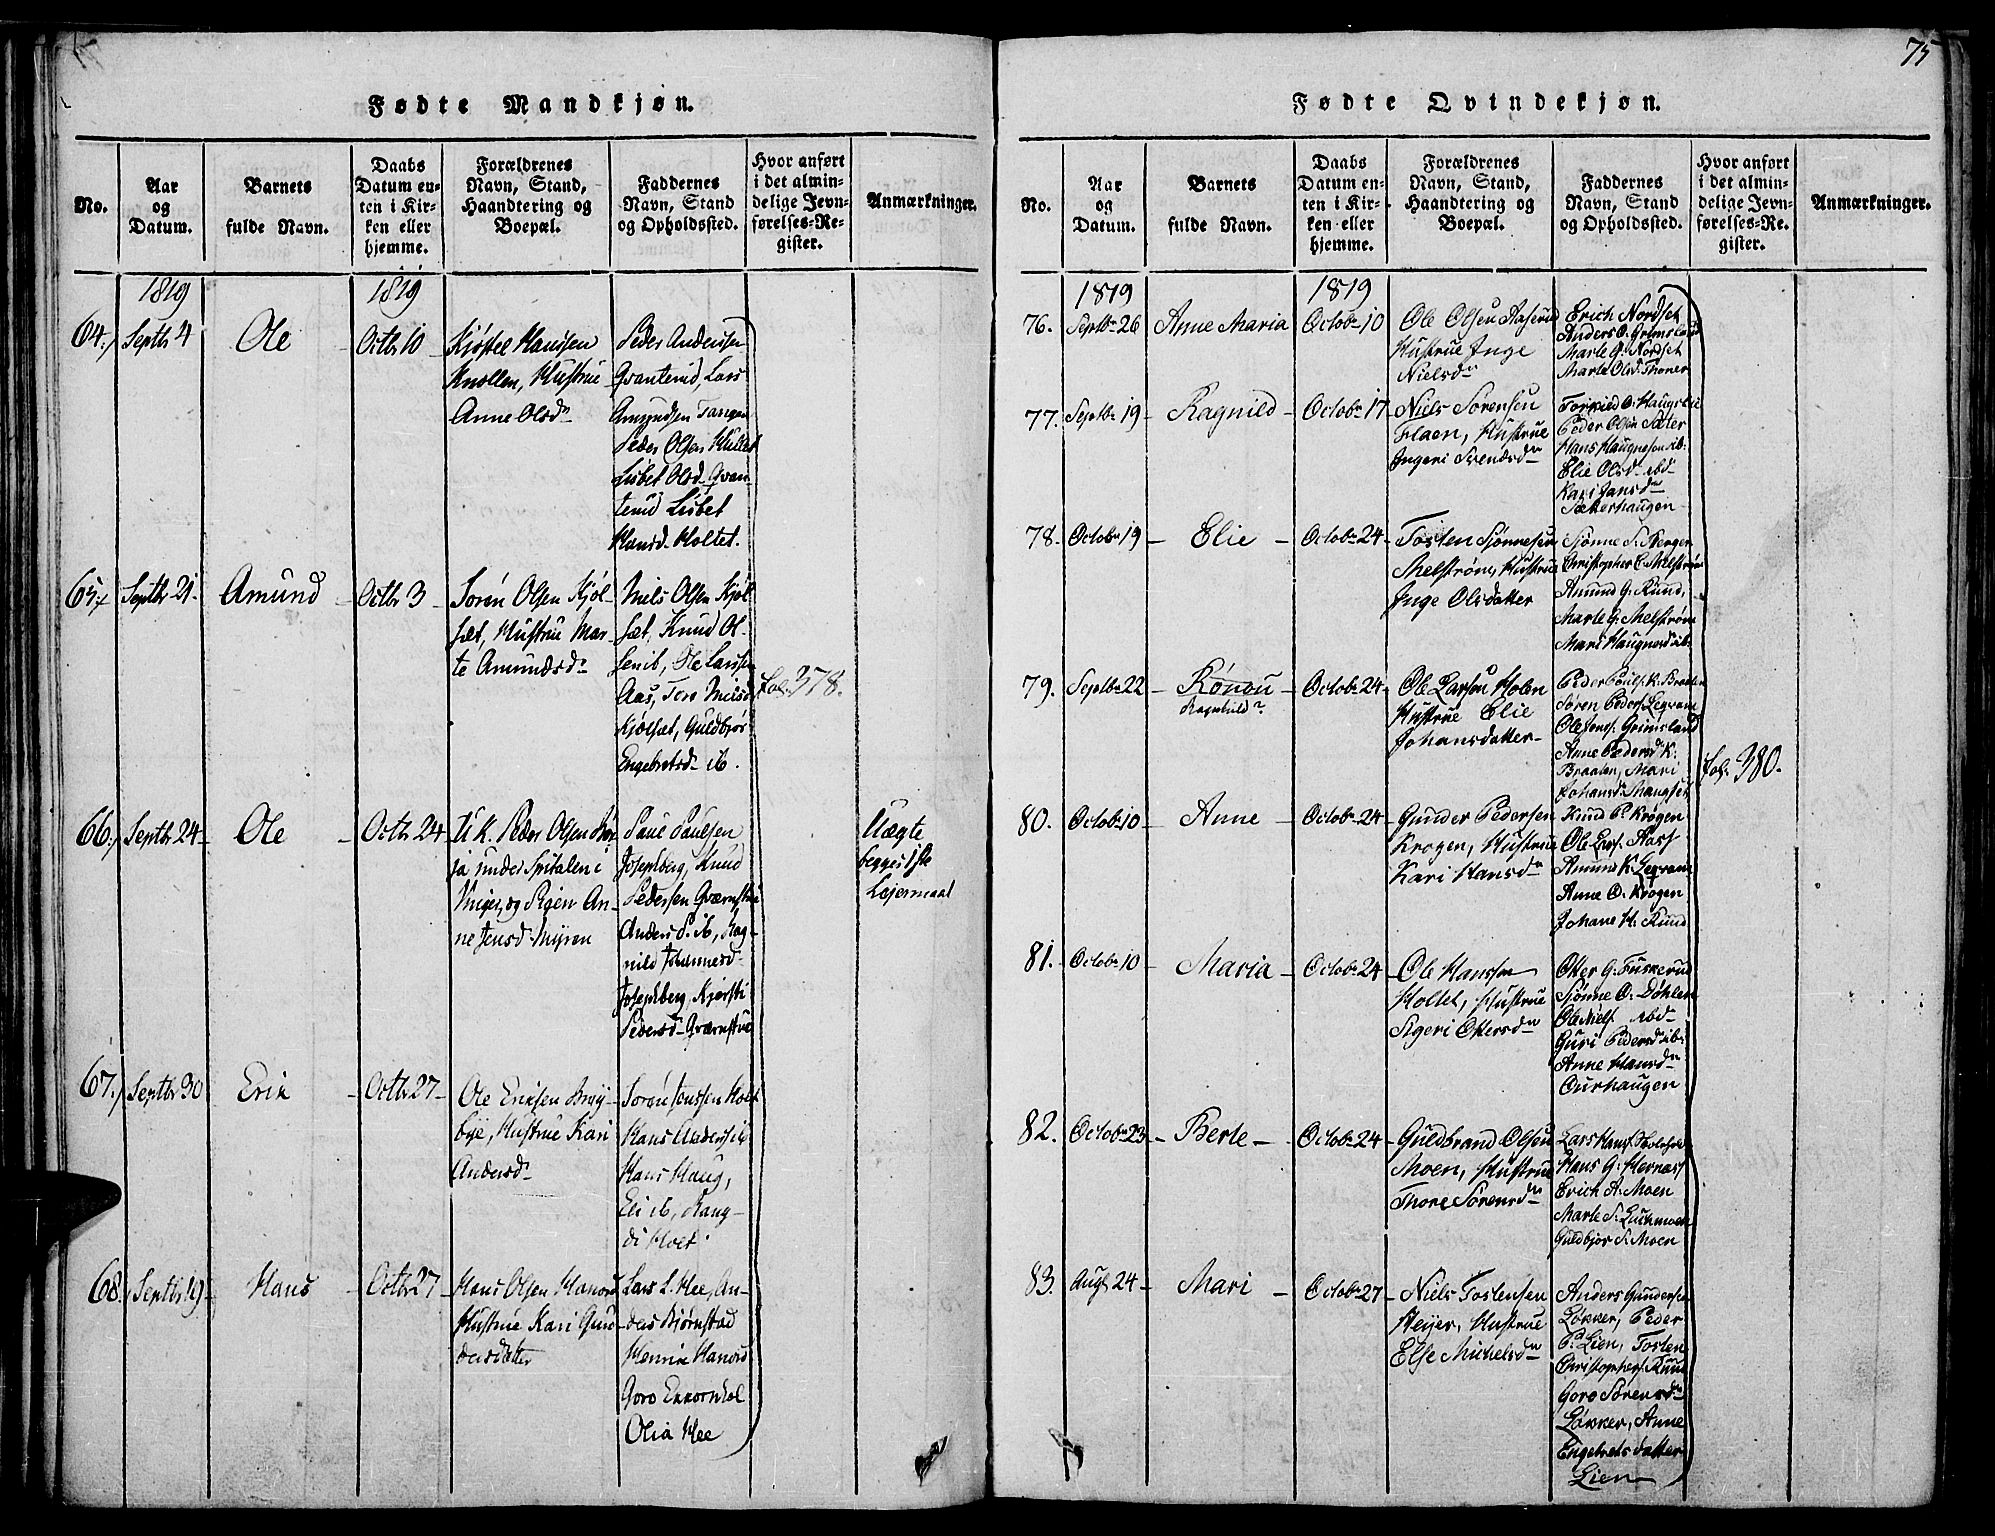 75
Fødte Mandkjøn.
No.
Aar
og
Datum.
Barnets
fulde Navn.
Daabs
Datum en-
ten i Kir-
ken eller
hjemme.
Forældrenes
Navn, Stand,
Haandtering og
Boepæl.
Faddernes
Navn, Stand
og Opholdssted.
Hvor anført
i det almin-
delige Jevn-
førelses-Re-
gister.
Anmærkninger.
1819
1819
64.
Septbr 4
Ole
Octbr 10
Kjøstel Hansen
Knollen, Hustrue
Anne Olsdr
Peder Andersen
Qvanterud, Lars
Amundsen Tangen
Peder Olsen Hullet
Lisbet Olsd. Qvan-
terud Lisbet
Hansd. Holtet.
65.
Septbr 21
Amund
Octbr 3
Soren Olsen Kjøl-
sæt, Hustrue Mar-
te Amundsdr
Niels Olsen Kjøl-
sæt, Knud Ol-
sen ib, Ole Larssen
Aas, Tore Nielsd
Kjølsæt, Guldbjør
Engebretsd ib.
fol. 378.
66.
Septbr 24
Ole
Octbr 24
U.K. Peder Olsen
ja under Spitalen i
og Pigen An-
ne Jensd. Myren
Paul Paulsen
Josephberg, Knud
Pedersen Qværnstue
Anders P. ib, Rag-
nild Johannesd
Josephberg, Kjersti
Pedersd. Qværnstue
Uægte
begges 1ste
Lejermaal
67.
Septbr 30
Erik
Octbr 27
Ole Eriksen Brøy-
bye, Hustrue Kari
Andersdr
Soren Jonssen Holt
Hans Anders ib
Hans Haug,
Eli ib, Rang-
di Holt.
68.
Septbr 19
Hans
Octbr 27
Hans Olsen Hanord
Hustrue Kari Gun-
dersdatter
Lars L. Hee, An-
ders Bjørnstad
Henrik Hanord
Goro Ekkornhol
Olia Hee
Fødte Qvindekjøn.
No.
Aar
og
Datum.
Barnets
fulde Navn.
Daabs
Datum en-
ten i Kir-
ken eller
hjemme.
Forældrenes
Navn, Stand,
Haandtering og
Boepæl.
Faddernes
Navn, Stand
og Opholdssted.
Hvor anført
i det almin-
delige Jevn-
førelses-Re-
gister.
Anmærkninger.
1819
1819
76.
Septbr 26
Anne Maria
Octobr 10
Ole Olsen Aaserud
Hustrue Inge
Nielsdr
Erich Nordset
Anders O. Grimsland
Marte G. Nordset
Marte Olsd. Thoner
77.
Septbr 19
Ragnild
Octobr 17
Niels Sørensen
Flaen, Hustrue
Ingeri Svendsdr
Torkied O. Haugstue
Peder Olsen Sæter
Hans Haugnesen ib:
Elie Olsd. ibd
Kari Jansdr
Sætterhaugen
78.
Octobr 19
Elie
Octobr 24
Tosten Sjønnesen
Melstrøm, Hustrue
Inge Olsdatter
Sjønne S. Bergen
Christopher C. Melstrøm
Amund G. Rund,
Marte G. Melstrøm
Mari Haugnesd ib:
79.
Septbr 22
Rønou
Ragnhild?
Octobr 24
Ole Larsen Holen
Hustrue Elie
Johansdatter
Peder Pouls. K. Braaten
Søren Peders. Legvam
Ole Jons. Grimsland
Anne Pædersd. K:
Braaten, Mari
Johansd. Haugset
fol. 380.
80.
Octobr 10
Anne
Octobr 24
Gunder Pedersen
Krogen, Hustrue
Kari Hansdr
Knud P. Krogen
Ole Ers. Aas
Amund K. Legvam
Anne O. Krogen
Johane H. Rund
81.
Octobr 10
Maria
Octobr 24
Ole Hanssen
Holtet, Hustrue
Sigeri Ottersdr
Otter G. Tuskerud
Sjønne O. Døhlen
Ole Niels. ibd
Guri Pedersd ib:
Anne Hansdr
Ourhaugen
82.
Octobr 23
Berte
Octobr 24
Guldbrand Olsen
Moen, Hustrue
Thore Sørensdr
Lars Hans.
Hans G. Hernæs
Erich A. Moen
Marte S. Luchmoen
Guldbjør S. Moen
83.
Augst 24
Mari
Octobr 27
Niels Tostensen
Heyer, Hustrue
Else Michelsdr
Anders Gundersen
Løkker, Peder
P. Lien, Tosten
Christophers. Rund
Goro Sørensdr
Løkker, Anne
Engebretsdatter
Lien